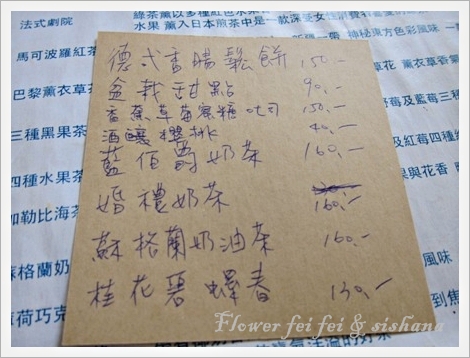 法式劇院
馬可波羅紅茶
巴黎薰衣草
三種黑果茶
四種水果茶
加勒比海茶
格蘭奶
荷巧克
水果 薰入日本煎茶中是一款深受女性消費
神秘東方色彩風味
草花 薰衣草香
果與花香
風味
德式香腸鬆餅 150.-
盆栽甜點 90.-
香蕉草莓蜜糖吐司 150.-
酒釀櫻桃 40.-
藍伯爵奶茶 160.-
婚禮奶茶 160.-
蘇格蘭奶油茶 160.-
桂花碧螺春 130.-
Flower fei fei & sishana